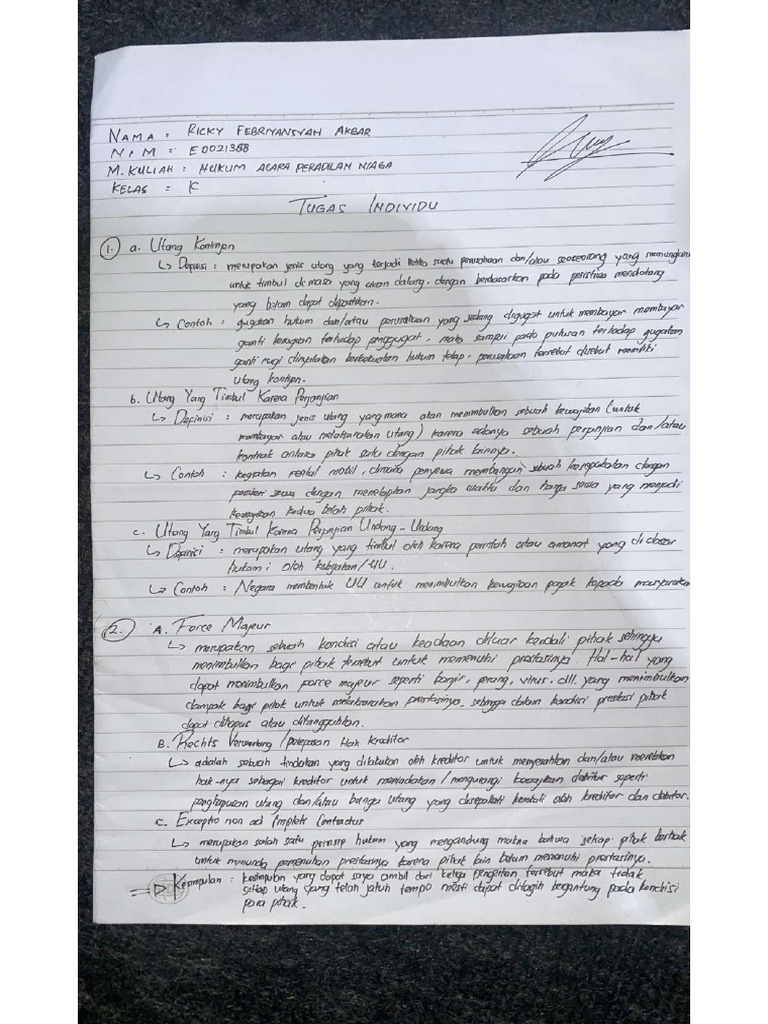 NAMA : RICKY FEBRIYANSYAH AKBAR
NIM : E0021388
M. KULIAH : HUKUM ACARA PERADILAN NIAGA
KELAS : K
TUGAS INDIVIDU
1. a. Utang Kontinjen
↳ Definisi : merupakan jenis utang yang terjadi ketika suatu perusahaan dan/atau seoseorang yang memungkin
untuk timbul di masa yang akan datang, dengan berdasarkan pada peristiwa mendatang
yang belum dapat dipastikan.
↳ Contoh : gugatan hukum dan/atau perusahaan yang sedang digugat untuk membayar membayar
ganti kerugian terhadap penggugat, maka sampai pada putusan terhadap gugatan
ganti rugi dinyatakan berkekuatan hukum tetap, perusahaan tersebut disebut memiliki
utang kontijen.
b. Utang Yang Timbul Karena Perjanjian
↳ Definisi : merupakan jenis utang yang mana akan menimbulkan sebuah kewajiban (untuk
membayar atau melaksanakan utang) karena adanya sebuah perjanjian dan/atau
kontrak antara pihak satu dengan pihak lainnya.
↳ Contoh : kegiatan rental mobil, dimana penyewa membangun sebuah kesepakatan dengan
pemberi sewa dengan menetapkan jangka waktu dan harga sewa yang menjadi
kewajiban kedua belah pihak.
c. Utang Yang Timbul Karena Perjanjian Undang-Undang
↳ Definisi : merupakan utang yang timbul oleh karena perintah atau amanat yang di dasar
hukum i oleh kebijakan/UU.
↳ Contoh : Negara membentuk UU untuk menimbulkan kewajiban pajak kepada masyarakat
2. A. Force Majeur
↳ merupakan sebuah kondisi atau keadaan diluar kendali pihak sehingga
menimbulkan bagi pihak tersebut untuk memenuhi prestasinya. Hal-hal yang
dapat menimbulkan force majeur seperti banjir, perang, virus, dll. yang menimbulkan
dampak bagi pihak untuk melaksanakan prestasinya, sehingga dalam kondisi prestasi pihak
dapat dihapus atau ditangguhkan.
B. Rechts Verwerking / pelepasan Hak Kreditor
↳ adalah sebuah tindakan yang dilakukan oleh kreditor untuk menyerahkan dan/atau merelakan
hak-nya sebagai kreditor untuk meniadakan / mengurangi kewajiban debitur seperti
penghapusan utang dan/atau bunga utang yang disepakati kembali oleh kreditor dan debitor.
c. Exceptio non ad Impleti Contractus
↳ merupakan salah satu prinsip hukum yang mengandung makna bahwa setiap pihak berhak
untuk menunda pemenuhan prestasinya karena pihak lain belum memenuhi prestasinya.
Kesimpulan : kesimpulan yang dapat saya ambil dari ketiga pengertian tersebut maka tidak
setiap utang yang telah jatuh tempo mesti dapat ditagih bergantung pada kondisi
para pihak.